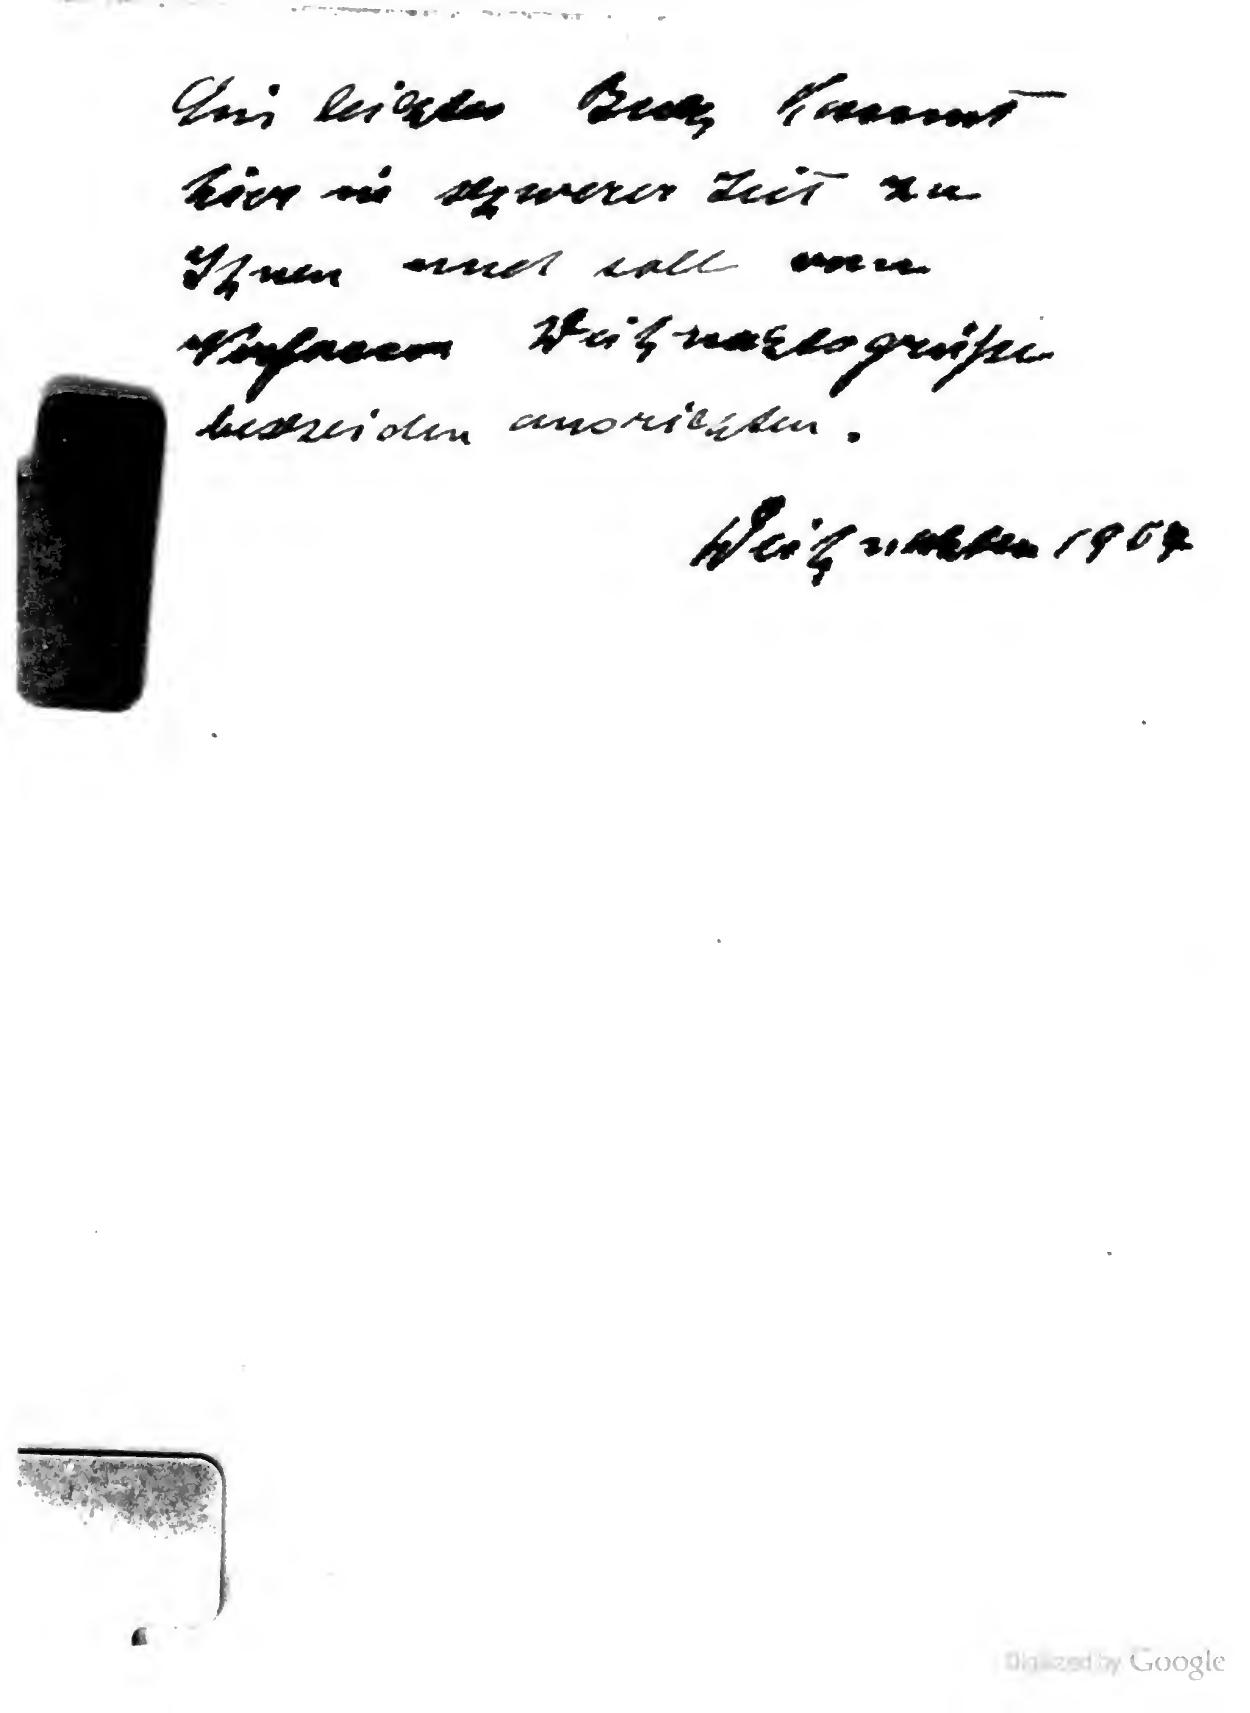 Ein leichtes Buch kommt
hier in schwerer Zeit zu
Ihnen und soll vom
Verfasser Weihnachtsgrüße
bescheiden ausrichten.
Weihnachten 1907
Digitized by Google